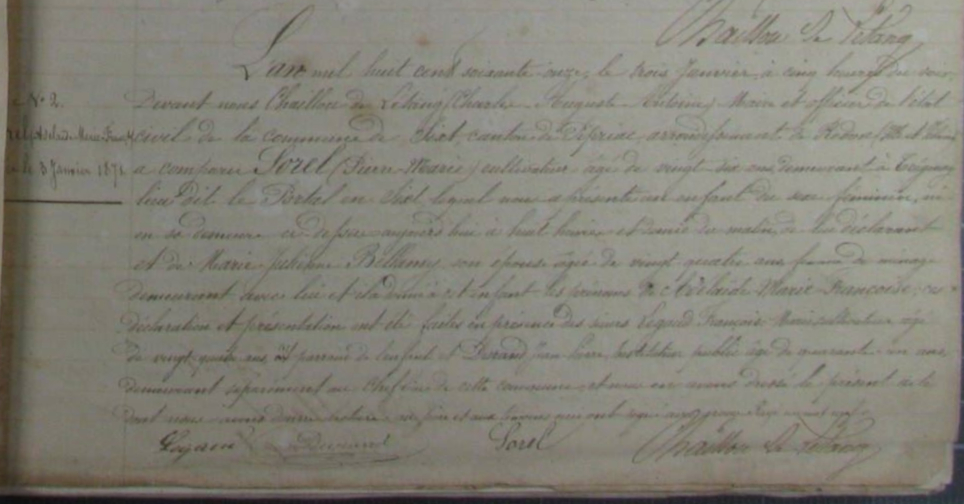 Chaillou de l'étang
L'an mil huit cent soixante onze, le trois Janvier, à cinq heures du soir
Devant nous Chaillou de l'étang (Charles Auguste Antoine) Maire et officier de l'état
civil de la commune de Sixt, canton de Pipriac arrondissement de Redon
N° 2.
Marie Franç
a comparu Sorel (Pierre Marie) cultivateur âgé de vingt six ans demeurant à
le 3 Janvier 1871
lieu dit le Portal en Sixt lequel nous a présenté un enfant du sexe féminin, né
en sa demeure ci dessus aujourd'hui à huit heures et demie du matin, de lui déclarant
et de Marie Bellamy son épouse âgée de vingt quatre ans, de ménage
demeurant avec lui et a donné à cet enfant les prénoms de Adélaïde Marie Françoise, ces
déclaration et présentation ont été faites en présence des sieurs François Marie cultivateur âgé
de vingt quatre ans parrain de l'enfant et Durand Pierre Instituteur public âgé de quarante un ans
demeurant séparément au chef lieu de cette commune et nous en avons dressé le présent acte
dont nous avons donné lecture au père et aux témoins qui ont signé avec nous
Durand Sorel Chaillou de l'étang